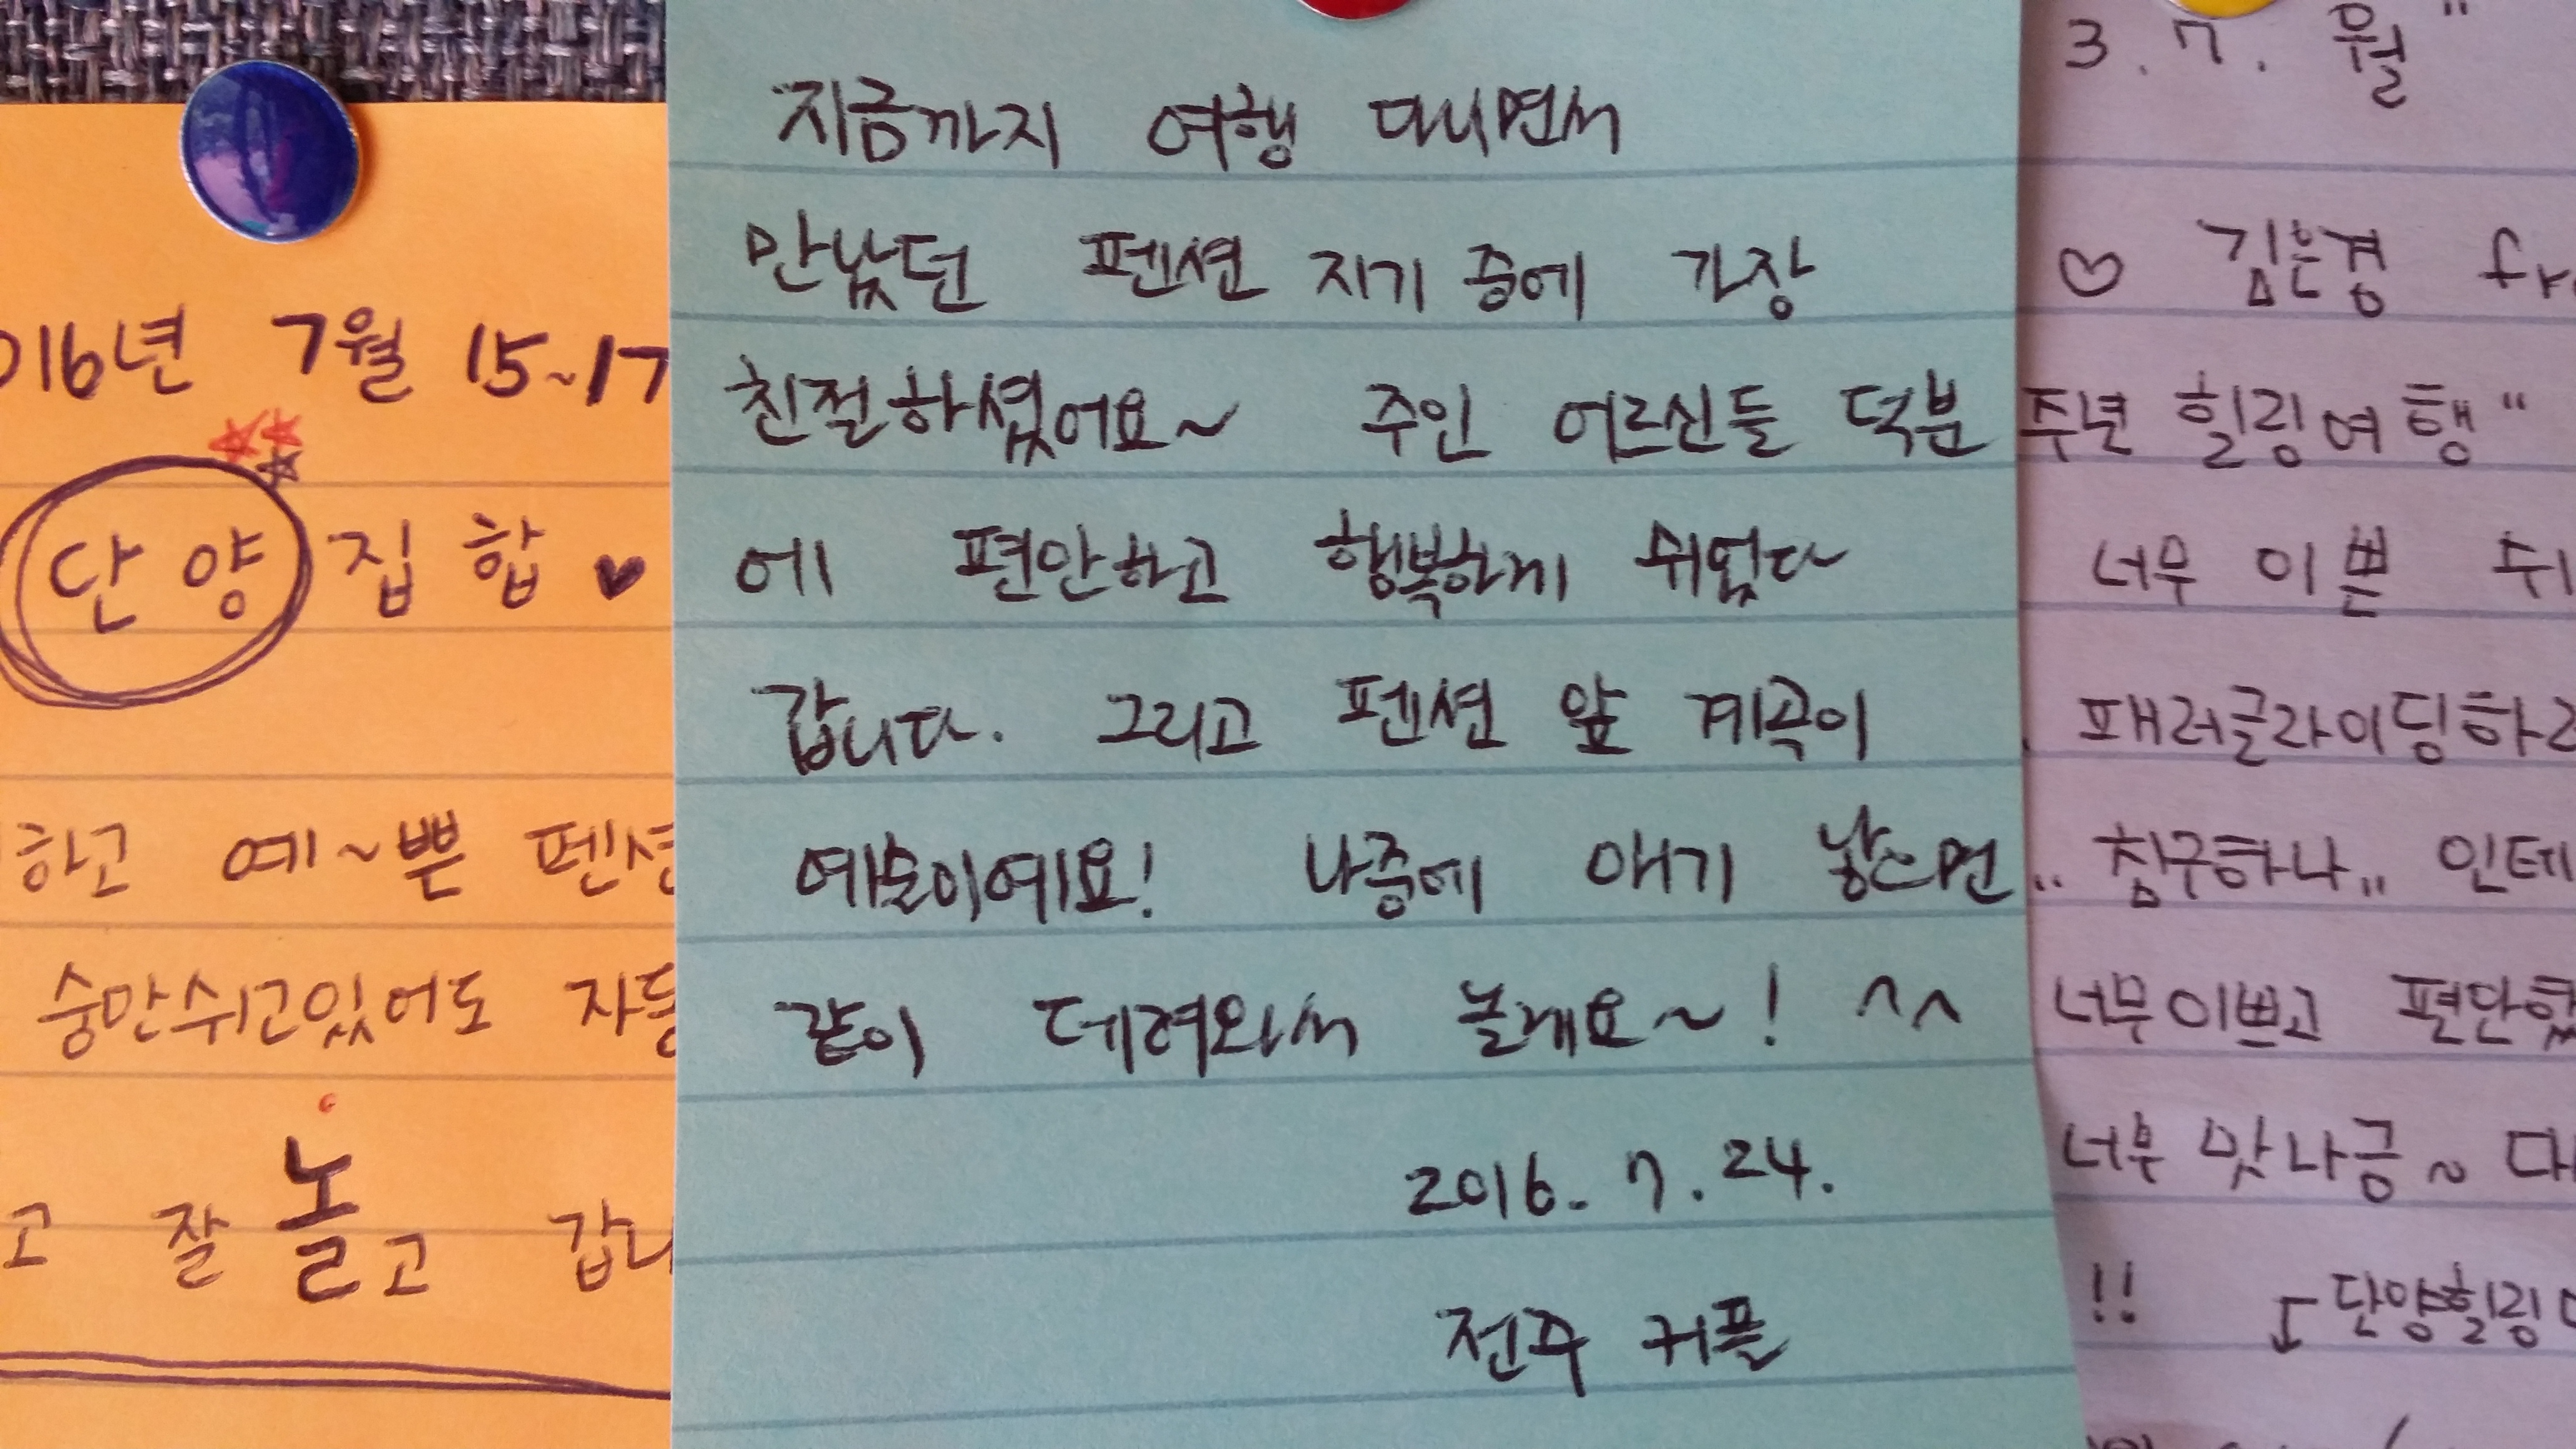 016년 7월 15~17
단양 집합 ♥
하고 예~쁜 펜션
숨만쉬고있어도 자동
고 잘 놀고 갑니
지금까지 여행 다니면서
만났던 펜션 지기 중에 가장
친절하셨어요~ 주인 어르신들 덕분
에 편안하고 행복하게 쉬었다
갑니다. 그리고 펜션 앞 계곡이
예술이예요! 나중에 애기 낳으면
같이 데려와서 놀게요~! ^^
2016. 7. 24.
전주 커플
3. 7. 월"
♡ 김은경 fr
주년 힐링여행"
너무 이쁜 뒤
패러글라이딩하러
.. 침구하나,, 인테
너무이쁘고 편안했
너무 맛나금~ 대
!! 단양힐링